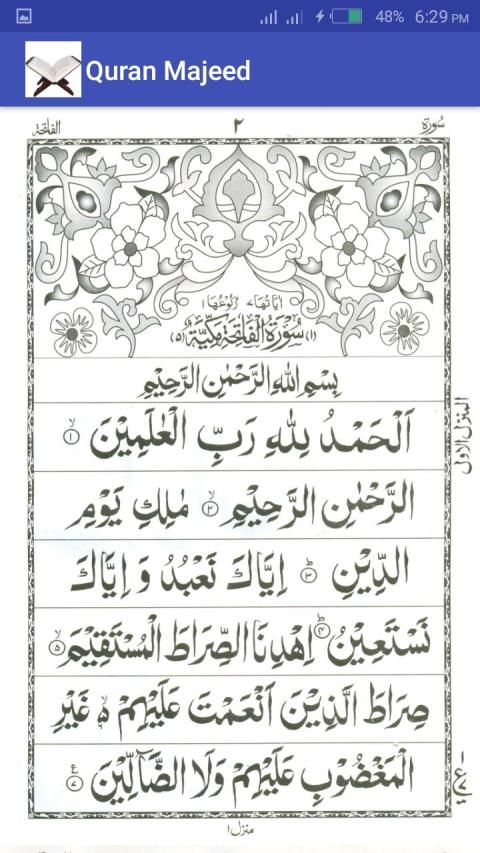 48% 6:29 PM
Quran Majeed
سورة ٢ الفاتحة
اٰيَاتُهَا ٧ رُكُوْعُهَا ١
(١) سُوْرَةُ الْفَاتِحَةِ مَكِّيَّةٌ (٥)
بِسْمِ اللهِ الرَّحْمٰنِ الرَّحِيْمِ
اَلْحَمْدُ لِلّٰهِ رَبِّ الْعٰلَمِيْنَ ۙ ١
الرَّحْمٰنِ الرَّحِيْمِ ۙ ٢ مٰلِكِ يَوْمِ
الدِّيْنِ ؕ ٣ اِيَّاكَ نَعْبُدُ وَ اِيَّاكَ
نَسْتَعِيْنُ ؕ ٤ اِهْدِنَا الصِّرَاطَ الْمُسْتَقِيْمَ ۙ ٥
صِرَاطَ الَّذِيْنَ اَنْعَمْتَ عَلَيْهِمْ ۙ۬ غَيْرِ
الْمَغْضُوْبِ عَلَيْهِمْ وَلَا الضَّآلِّيْنَ ٧
المنزل الاول
منزل ١